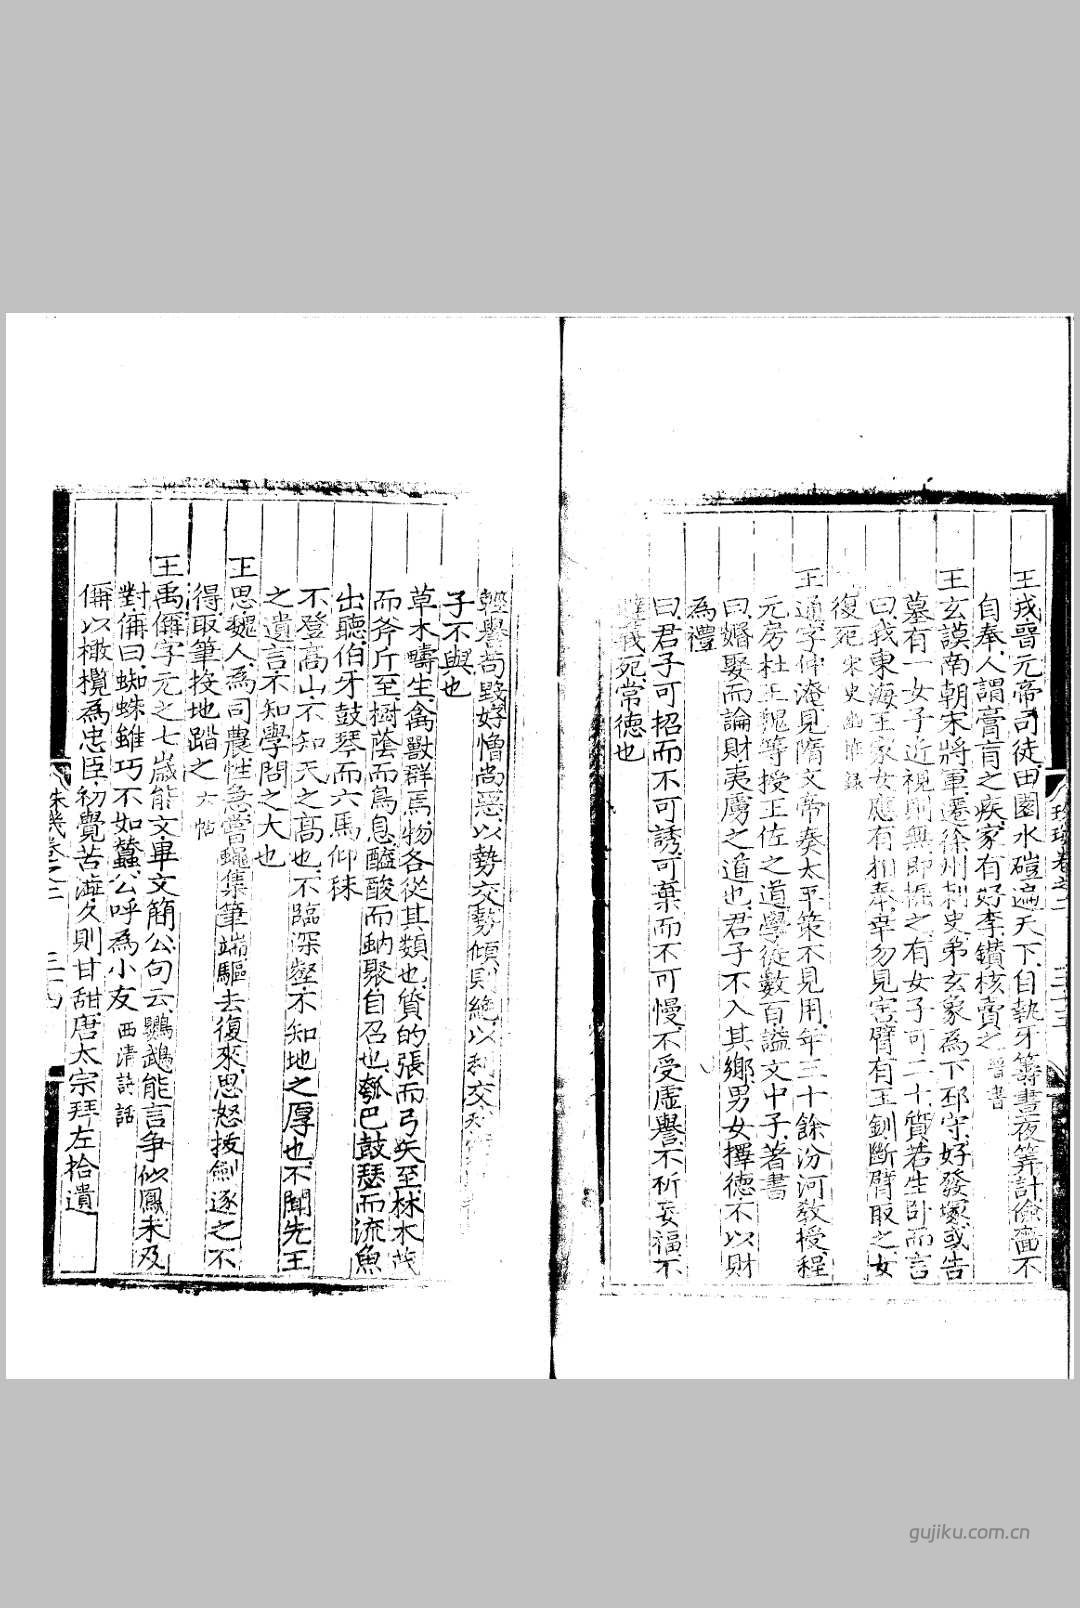 王戎晋元帝司徒田園水磑遍天下自執牙籌晝夜筭計儉嗇不
自奉人謂膏肓之疾家有好李鑚核賣之晉書
王玄謨南朝宋將軍遷徐州刺史弟玄象為下邳守好發塚或告
墓有一女子近視則無即掘之有女子可二十質若生卧而言
曰我東海王家女應有相奉幸勿見害臂有玉釧斷臂取之女
復死宋史
王通字仲淹見隋文帝奏太平策不見用年三十餘汾河教授程
元房杜王魏等授王佐之道學徒數百諡文中子著書
曰婚娶而論財夷虜之道也君子不入其鄉男女擇德不以財
為禮
曰君子可招而不可誘可棄而不可慢不受虛譽不祈妄福不
我死常德也
輕譽尚毀好憎尚惡以勢交勢傾則絶以利交
子不與也
草木疇生禽獸群焉物各從其類也質的張而弓矢至林木茂
而斧斤至樹蔭而鳥息醯酸而蚋聚自召也瓠巴鼓瑟而流魚
出聽伯牙鼓琴而六馬仰秣
不登高山不知天之高也不臨深壑不知地之厚也不聞先王
之遺言不知學問之大也
王思魏人為司農性急嘗蠅集筆端驅去復來思怒拔劍逐之不
得取筆投地踏之六帖
王禹偁字元之七歲能文畢文簡公句云鸚鵡能言争似鳳未及
對偁曰蜘蛛雖巧不如蠶公呼為小友西清詩話
偁以橄欖為忠臣初覺苦澁久則甘甜唐太宗拜左拾遺
卷之二 三十四
gujiku.com.cn